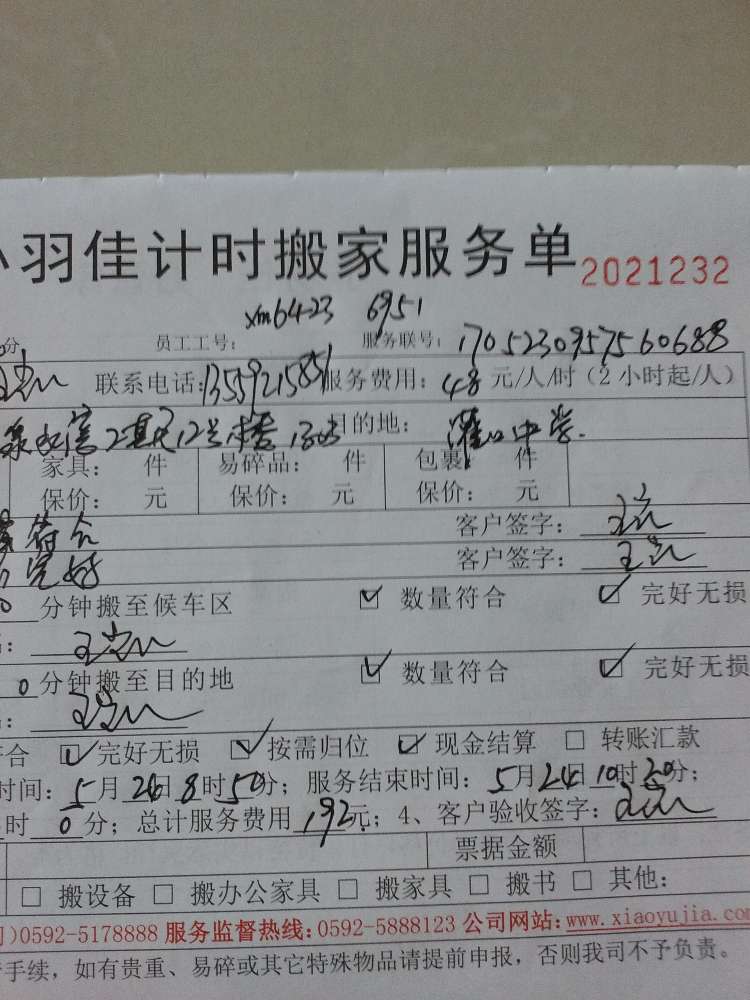 小羽佳计时搬家服务单 2021232
xm6423 6951
分 员工工号: 服务联号: 17052309575760688
联系电话:13559215851 服务费用: 48 元/人/时（2小时起/人）
2期12号楼 目的地: 灌口中学.
家具: 件 易碎品: 件 包裹: 件
保价: 元 保价: 元 保价: 元
符合 客户签字:
完好 客户签字:
0 分钟搬至候车区 ☑ 数量符合 ☑ 完好无损
0 分钟搬至目的地 ☑ 数量符合 ☑ 完好无损
符合 ☑ 完好无损 ☑ 按需归位 ☑ 现金结算 □ 转账汇款
时间: 5月24日8时50分; 服务结束时间: 5月24日10时50分;
时 0 分; 总计服务费用 192元; 4、客户验收签字:
票据金额
□ 搬设备 □ 搬办公家具 □ 搬家具 □ 搬书 □ 其他:
)0592-5178888 服务监督热线:0592-5888123 公司网站:www.xiaoyujia.com
手续，如有贵重、易碎或其它特殊物品请提前申报，否则我司不予负责。